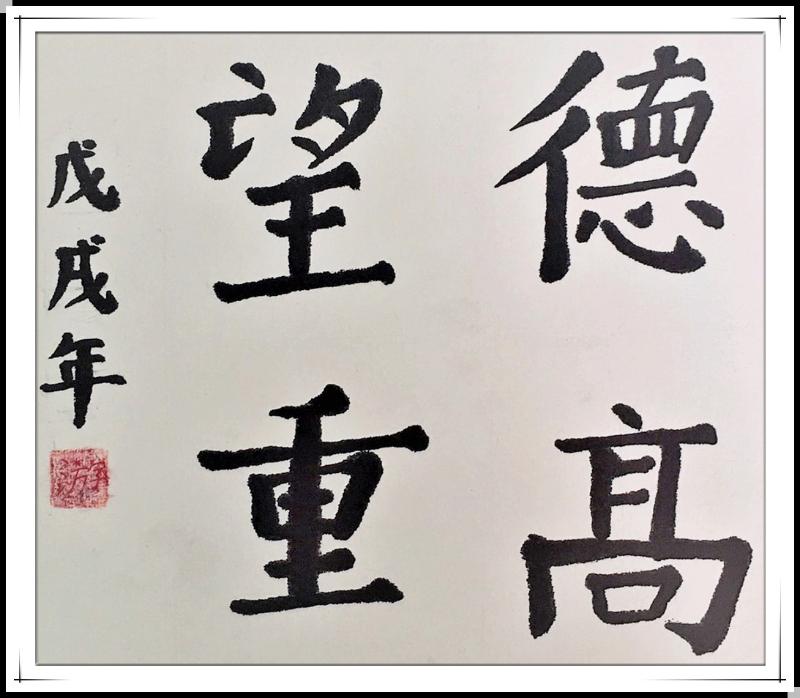 德髙
望重
戊戌年